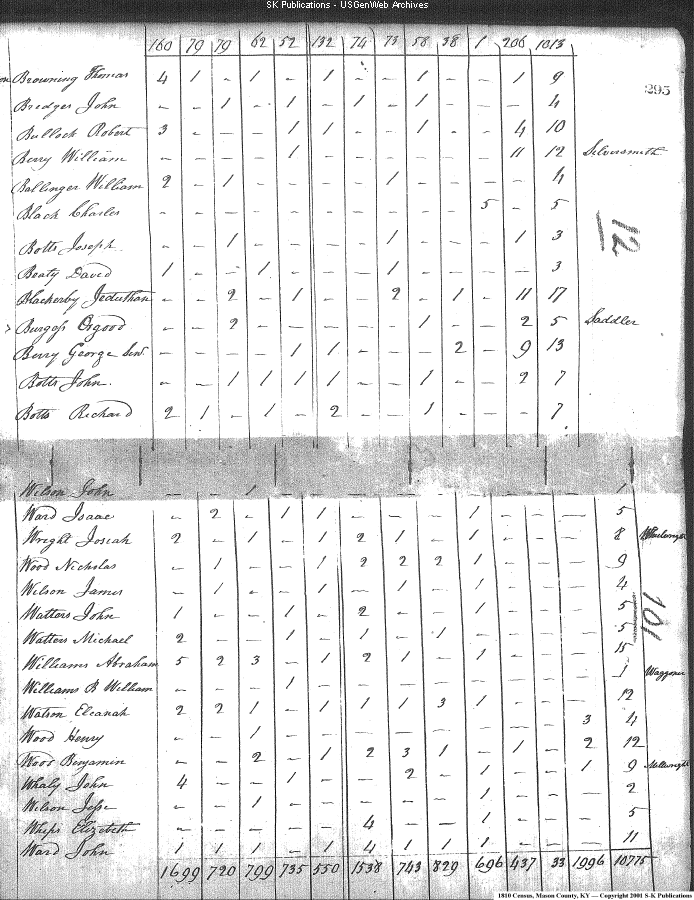 SK Publications - USGenWeb Archives
160 79 79 62 52 132 74 73 56 38 1 206 1013
295
Browning Thomas 4 1 - 1 - 1 - - 1 - - 1 9
Bredges John - - 1 - 1 - 1 - 1 - - - 4
Bullock Robert 3 - - - 1 1 - - 1 - - 4 10
Berry William - - - - 1 - - - - - - 11 12 Silversmith
Ballinger William 2 - 1 - - - - 1 - - - - 4
Black Charles - - - - - - - - - - 5 - 5
12
Botts Joseph - - 1 - - - - 1 - - - 1 3
Beaty David 1 - - 1 - - - 1 - - - - 3
Blackerby Jeduthan - - 2 - 1 - - 2 - 1 - 11 17
Burgess Osgood - - 2 - - - - - 1 - - 2 5 Saddler
Berry George Senr. - - - - 1 1 - - - 2 - 9 13
Botts John - - 1 1 1 1 - - 1 - - 2 7
Botts Richard 2 1 - 1 - 2 - - 1 - - - 7
Wilson John - - 1 - - - - - - - - - 1
Ward Isaac - 2 - 1 1 - - - 1 - - - 5
Wright Josiah 2 - 1 - 1 2 1 - 1 - - - 8
Wood Nicholas - 1 - - 1 2 2 2 1 - - - 9
Wilson James - 1 - - 1 - 1 - 1 - - - 4
Watters John 1 - - 1 - 2 - - 1 - - - 5
101
Watters Michael 2 - - 1 - 1 - 1 - - - - 5
Williams Abraham 5 2 3 - 1 2 1 - 1 - - - 15
Williams B William - - - 1 - - - - - - - - 1 Waggoner
Watson Eleanah 2 2 1 - 1 1 1 3 1 - - - 12
Wood Henry - - 1 - - - - - - - - 3 4
Wood Benjamin - - 2 - 1 2 3 1 - 1 - 2 12
Whaly John 4 - - 1 - - 2 - 1 - - 1 9 Millwright
Wilson Jesse - - 1 - - - - - 1 - - - 2
Whips Elizabeth - - - - - 4 - - 1 - - - 5
Ward John 1 1 1 - 1 4 1 1 1 - - - 11
1699 720 799 735 550 1538 743 829 696 437 33 1996 10775
1810 Census, Mason County, KY — Copyright 2001 S-K Publications